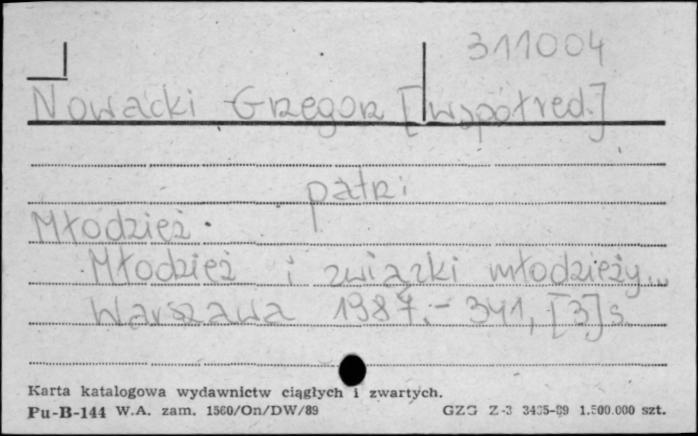 311004
Nowacki Grzegorz [współred.]
patrz:
Młodzież.
Młodzież i związki młodzieży...
Warszawa 1987.- 341, [3] s.
Karta katalogowa wydawnictw ciągłych i zwartych.
Pu-B-144 W.A. zam. 1560/On/DW/89 GZG Z-3 3435-89 1.500.000 szt.